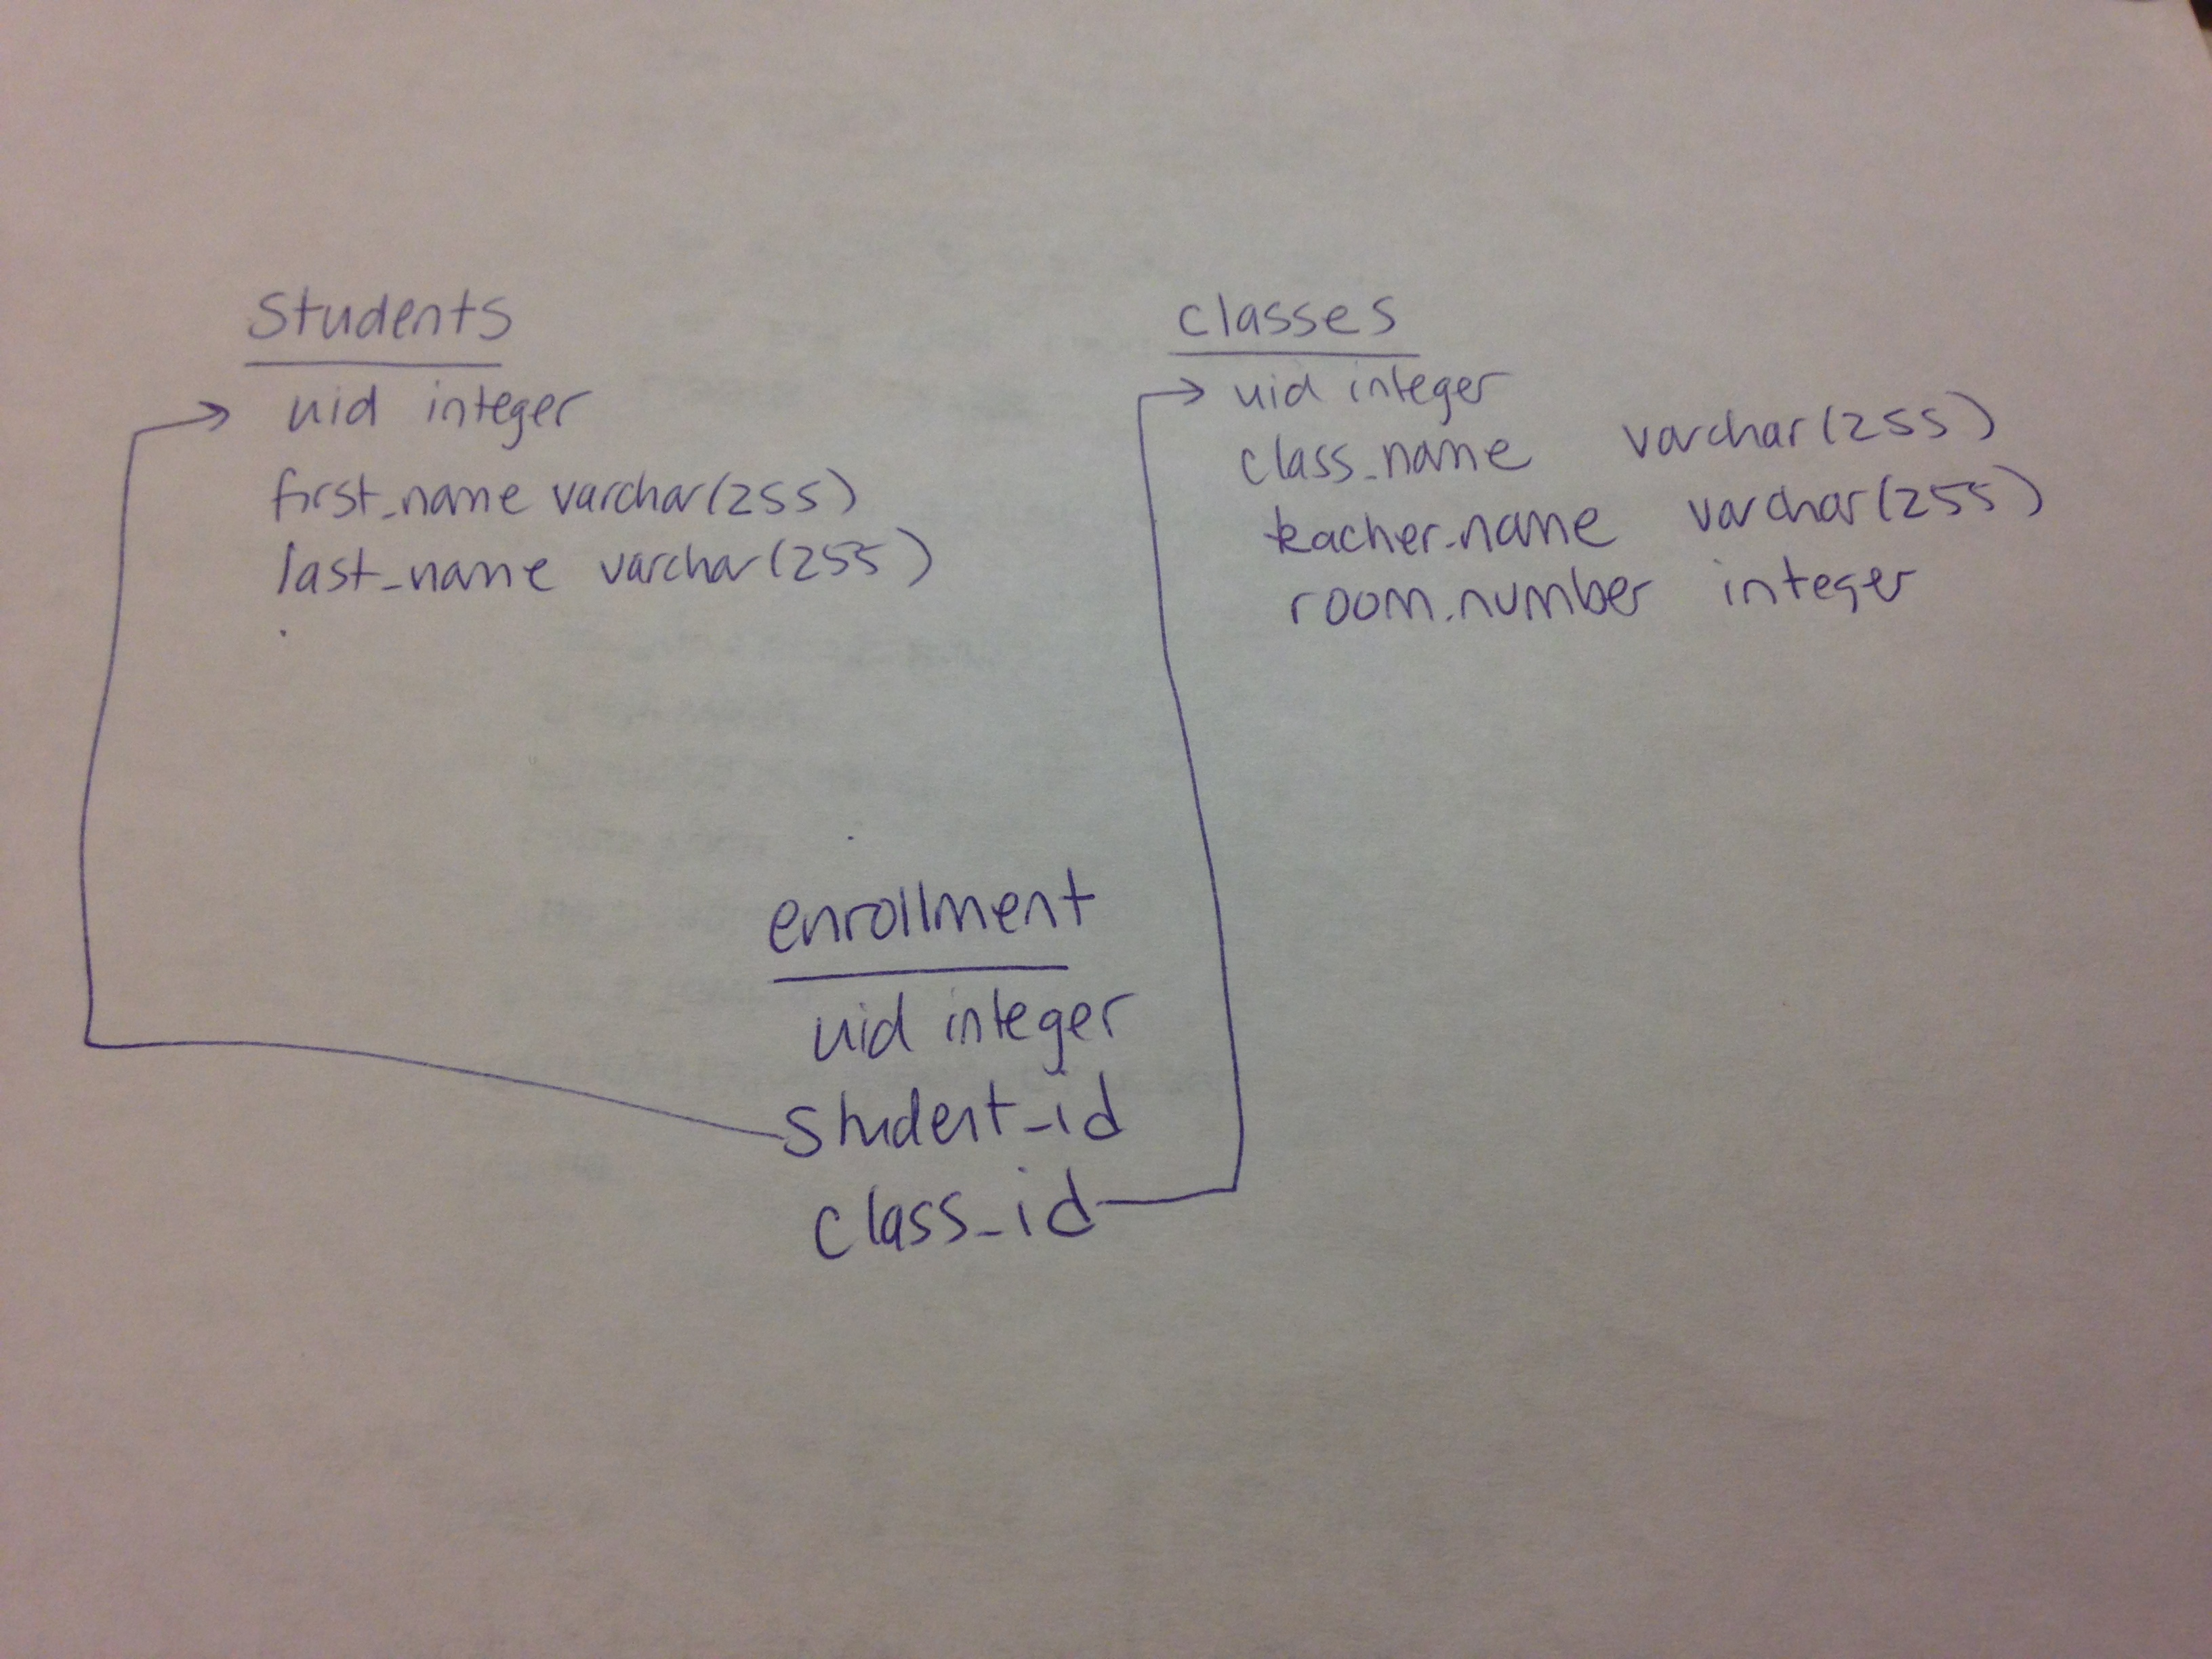 Students
uid integer
first_name varchar(255)
last_name varchar(255)
classes
uid integer
class_name varchar(255)
teacher_name varchar(255)
room_number integer
enrollment
uid integer
student_id
class_id